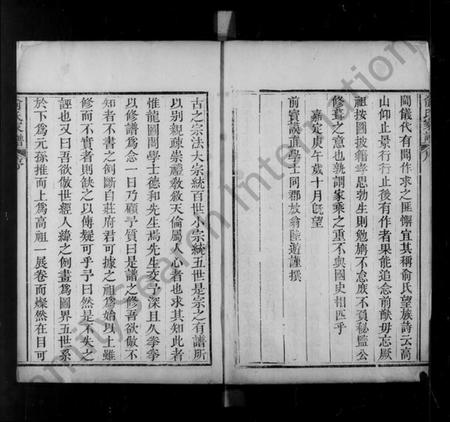 閥儀代有聞作求之匪懈宜其稱俞氏望族詩云高
山仰止景行行止後有作者果能追念前猷毋忘厥
祖按圖披籍孝思勃生則勉旃不怠庶不負秘監公
修葺之意也孰謂家乘之重不與國史相匹乎
嘉定庚午歲十月旣望
前寶謨直學士同郡放翁陸游謹撰
古之宗法大宗統百世小宗統五世是宗之有譜所
以別親疎崇禮敎敘天倫屬人心者也求其知此者
惟龍圖閣學士德和先生焉先生交予深且久拳拳
以修譜爲念一日乃顧予質曰是譜之修吾欲倣不
知者不書之例斷自莊府君可據之祖爲始以上雖
修而不實者則缺之以傳疑可乎予曰然是不失之
誣也又曰吾欲倣世經人緯之例畫爲圖界五世系
於下爲元孫推而上爲高祖一展卷而燦然在目可
俞氏家譜 序